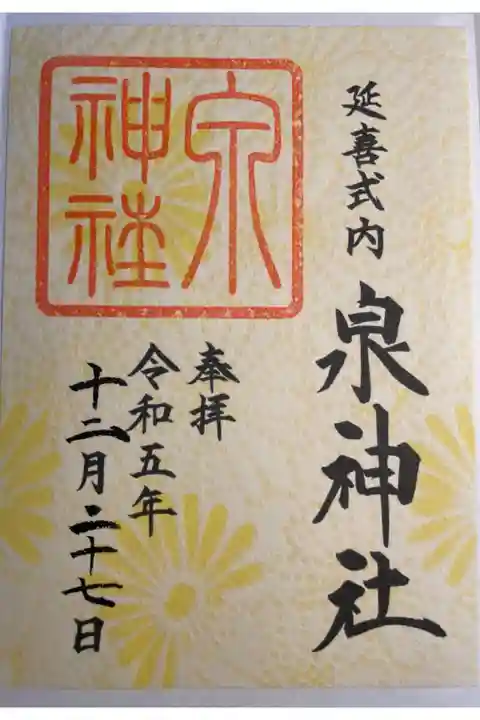 延喜式内
泉神社
奉拝
令和五年
十二月二十七日
泉
神社